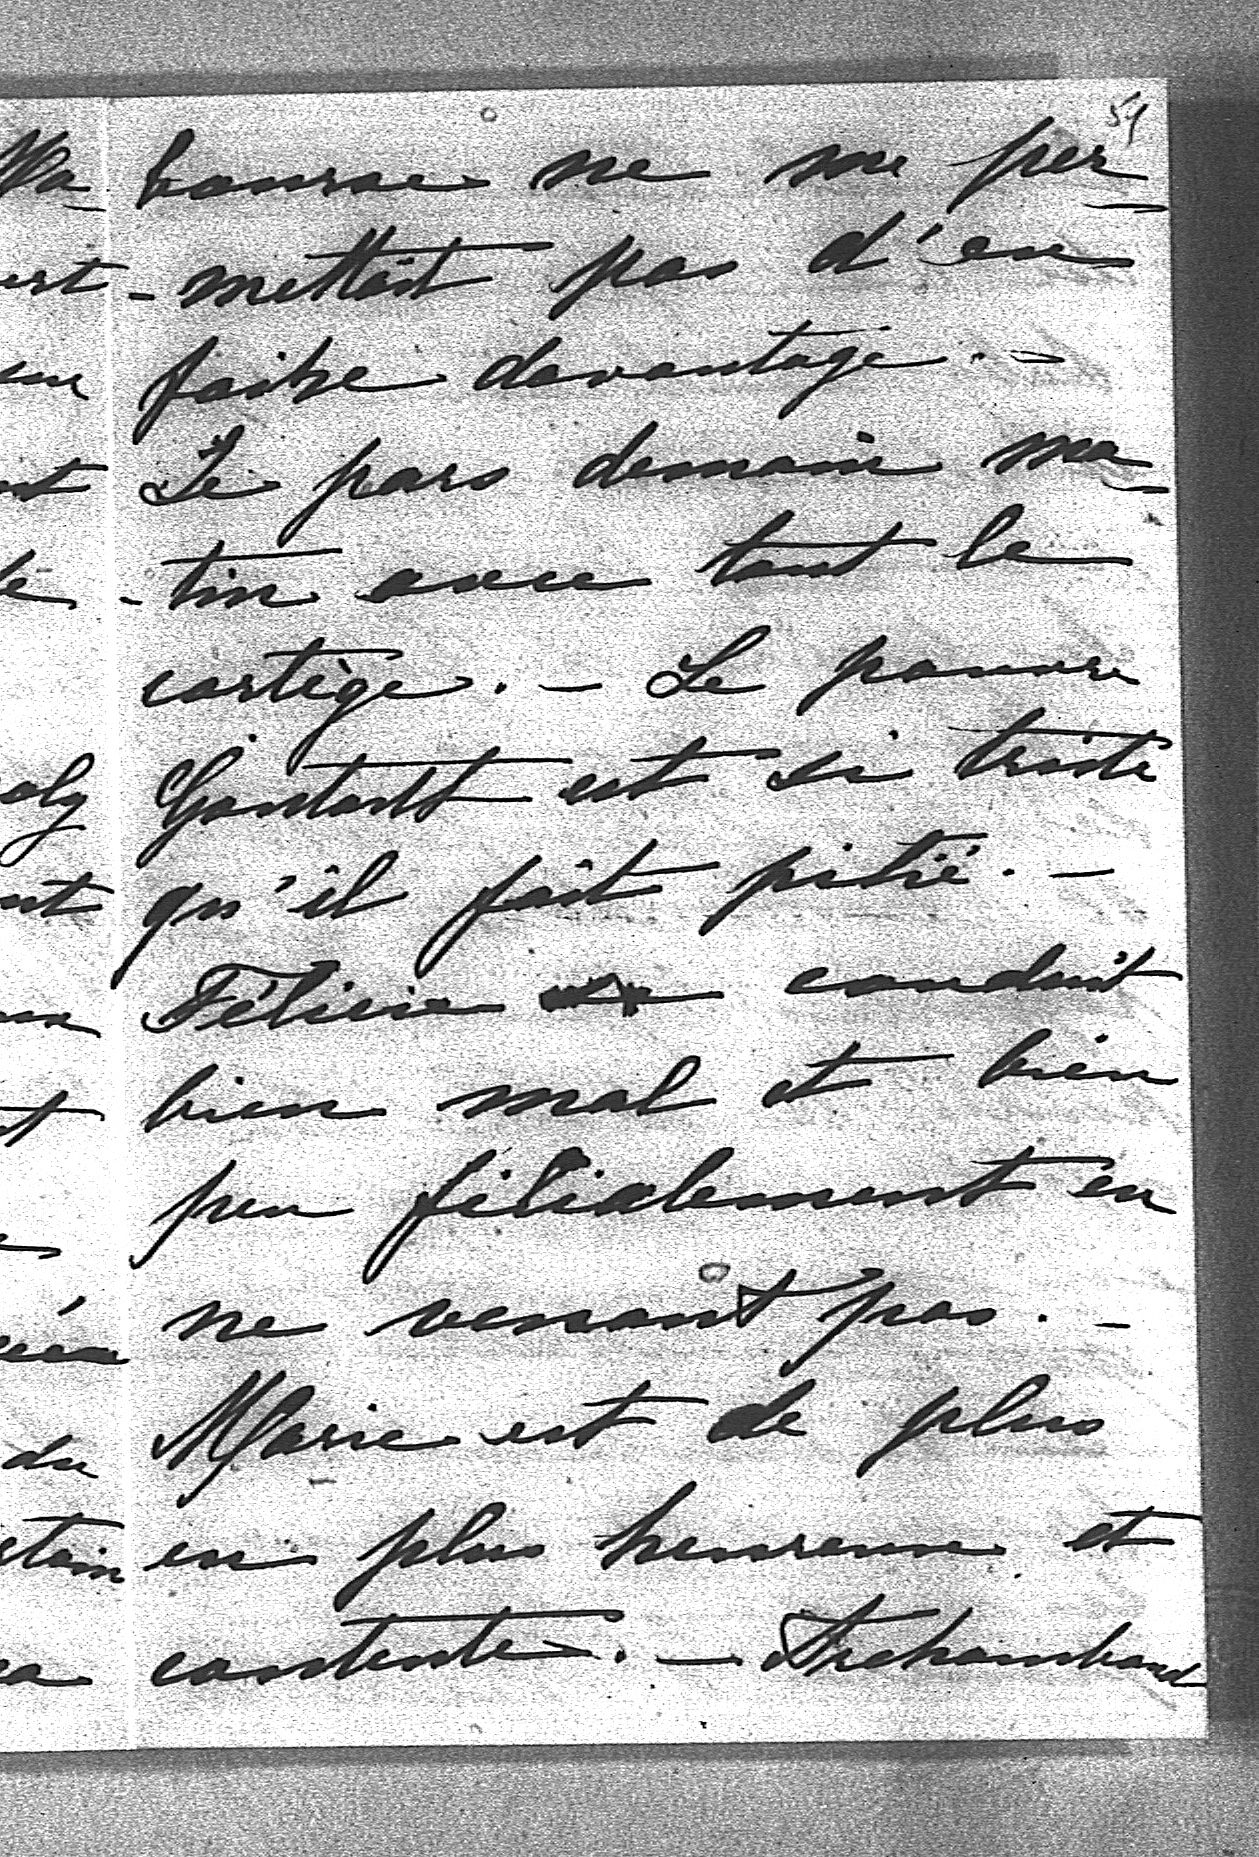 51
bourse ne me per-
-mettait pas d'en
faire davantage. -
Je pars demain ma-
-tin avec tout le
cortège. - Le pauvre
Gontaut est si triste
qu'il fait pitié. -
Félicie se conduit
bien mal et bien
peu filialement en
ne venant pas. -
Marie est de plus
en plus heureuse et
contente. - Archambaud